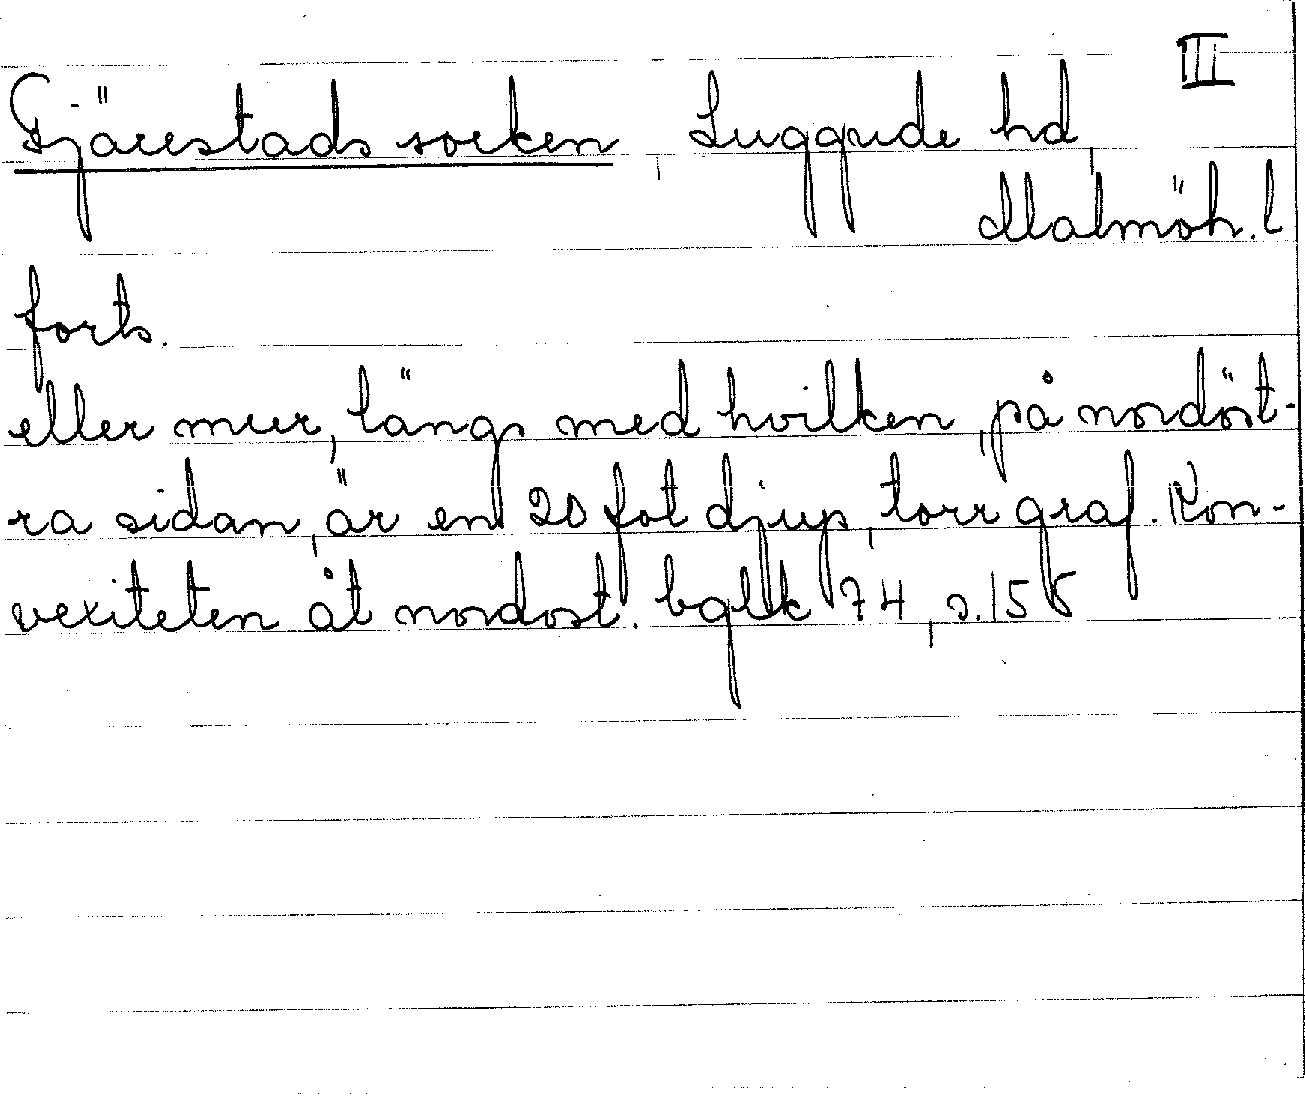 III
Fjärestads socken, Luggude hd,
Malmöh. l
forts.
eller mur, längs med hvilken, på nordöst-
ra sidan, är en 20 fot djup, torr graf. Kon-
vexiteten åt nordost. bglk 74, s. 155